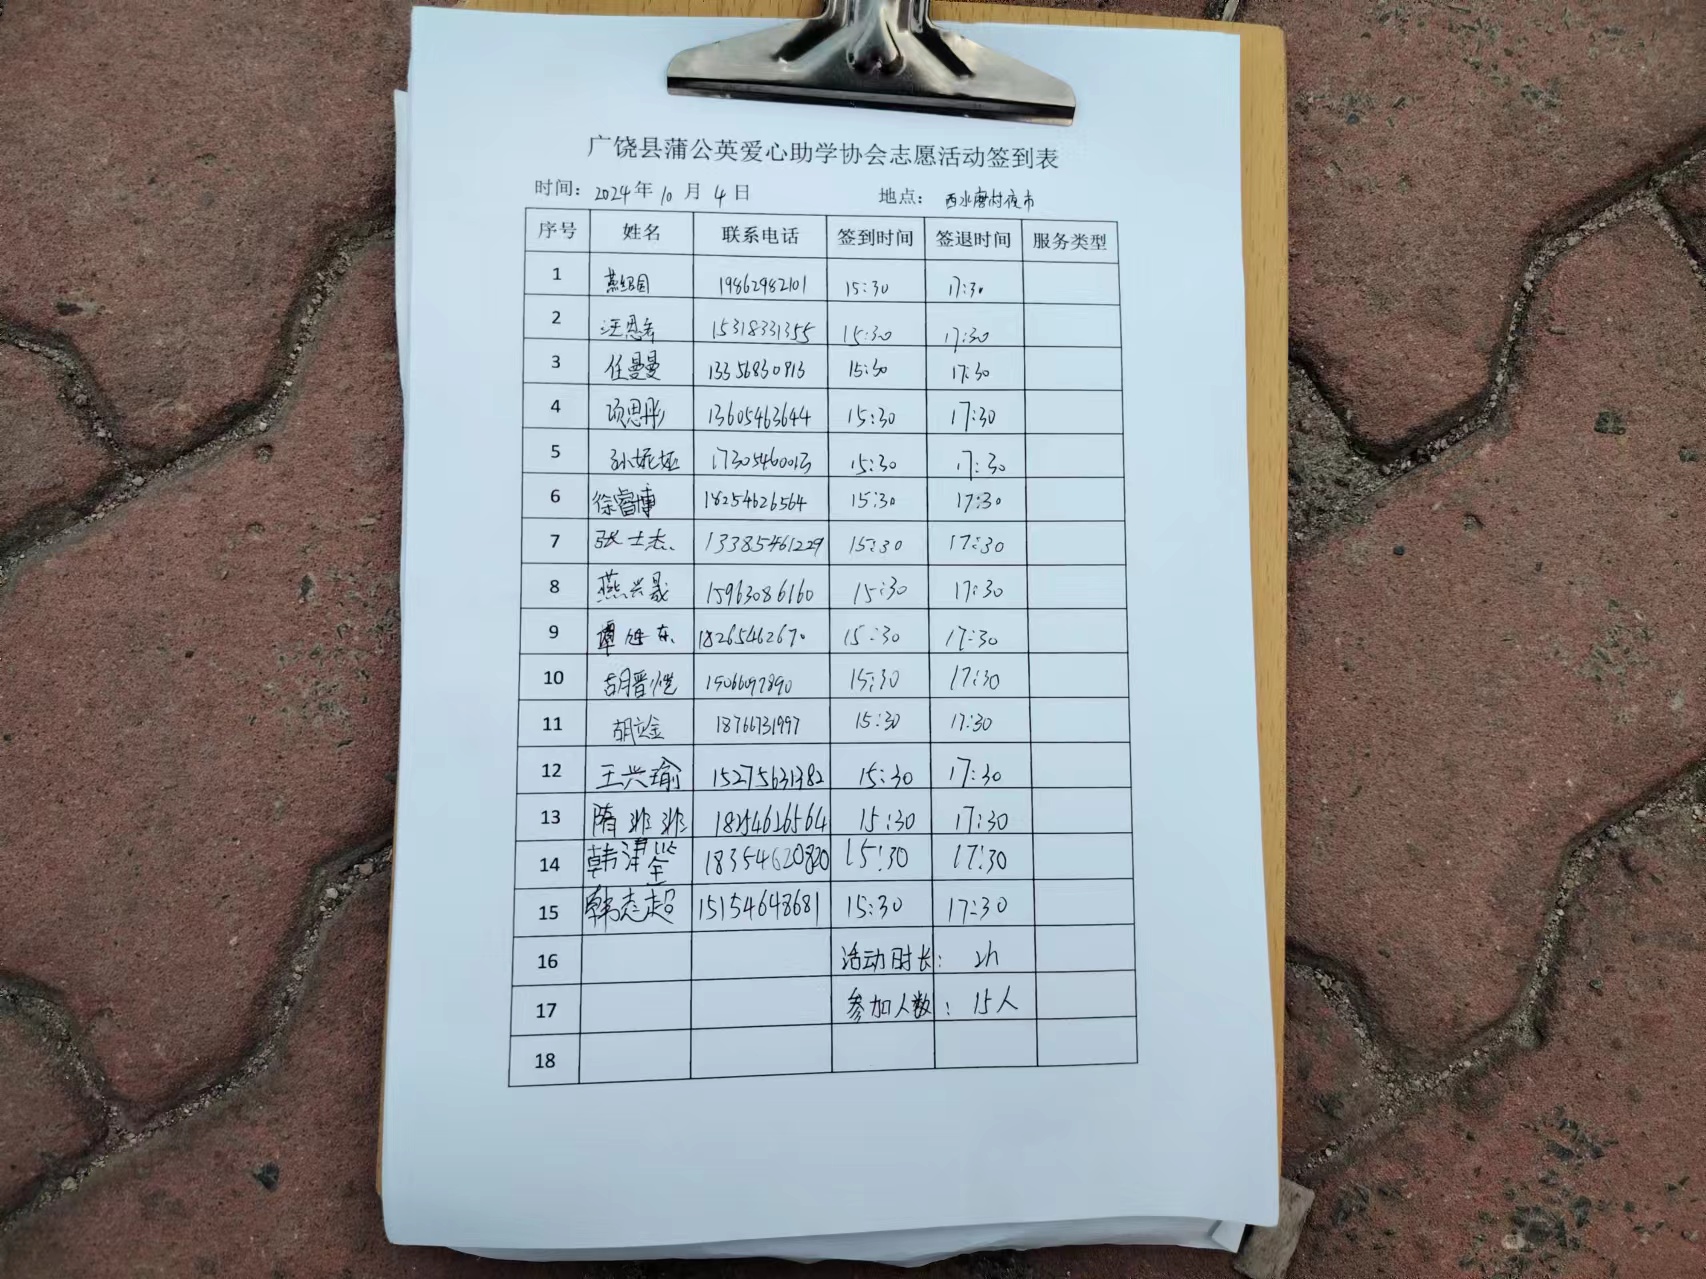 广饶县蒲公英爱心助学协会志愿活动签到表
时间：2024年10月4日 地点：西水磨村夜市
序号 姓名 联系电话 签到时间 签退时间 服务类型
1 19862982101 15:30 17:30
2 汪恩 15318331355 15:30 17:30
3 任曼曼 15:30 17:30
4 项思彤 13605463644 15:30 17:30
5 孙妮娅 17305460013 15:30 17:30
6 徐睿博 18254626564 15:30 17:30
7 张士杰 13385461229 15:30 17:30
8 燕兴晟 15963086160 15:30 17:30
9 谭 东 18265462670 15:30 17:30
10 胡晋恺 15066097890 15:30 17:30
11 胡立金 18766731997 15:30 17:30
12 王兴瑜 15275631382 15:30 17:30
13 隋非非 18254626564 15:30 17:30
14 韩清 18354620820 15:30 17:30
15 韩志超 15154648681 15:30 17:30
16 活动时长：2h
17 参加人数：15人
18